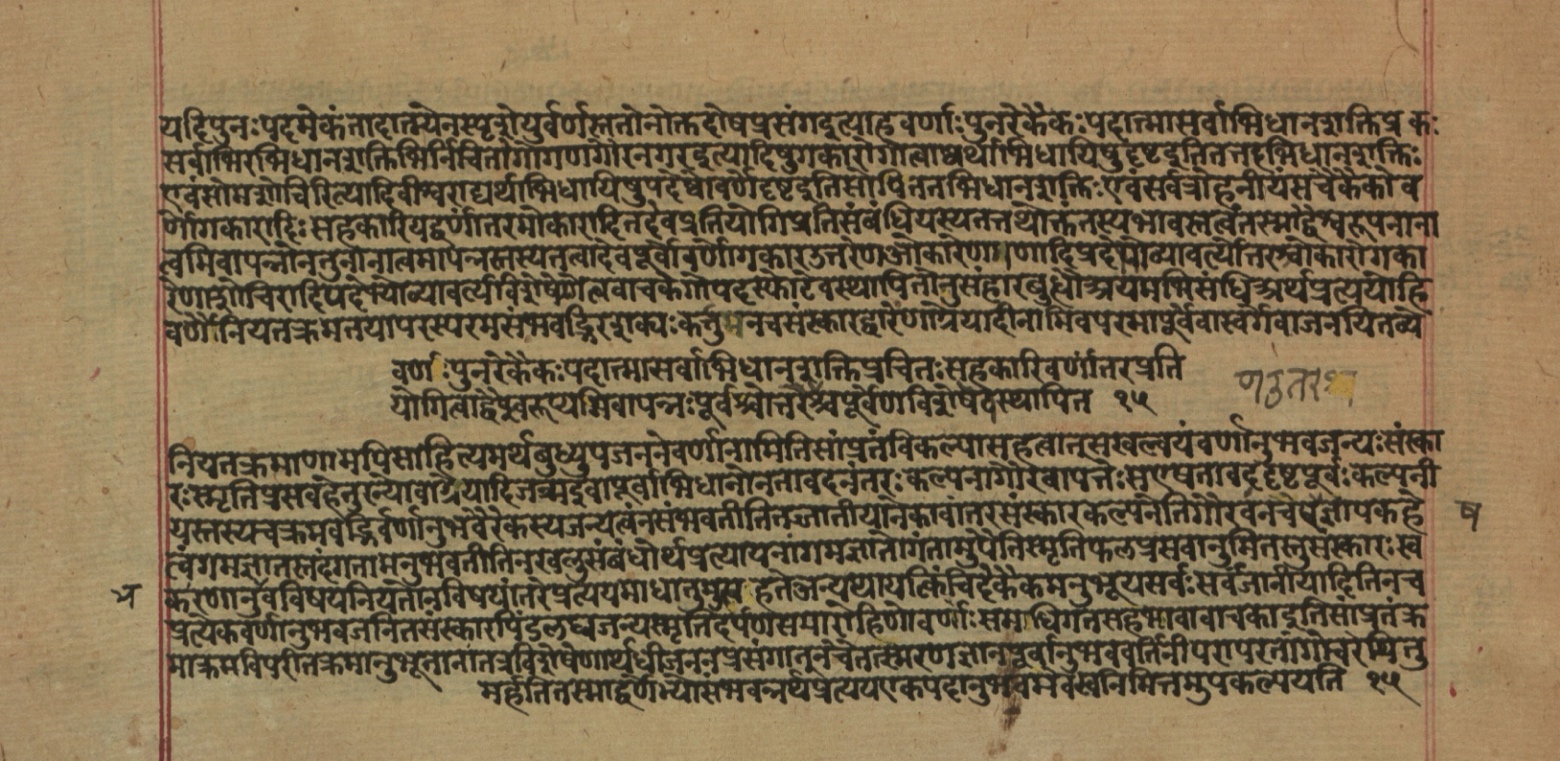 यदिपुनःपदमेकंतादात्म्येनस्पृशेयुर्वर्णास्ततोनोक्तदोषप्रसंगइत्याहवर्णाःपुनरेकैकःपदात्मासर्वाभिधानशक्तिप्रकः
सर्वाभिरभिधानशक्तिभिर्निचितोगोगणगौरनगरइत्यादिषुगकारोगोत्वाद्यर्थाभिधायिषुदृष्टइतितत्तदभिधानशक्तिः
एवंसोमशोचिरित्यादिवीश्वराद्यर्थाभिधायिषुपदेषोवर्णोदृष्टइतिसोपितत्तभिधानशक्तिःएवंसर्वत्रोहनीयंसचैकैकोव
र्णोगकारादिःसहकारियद्वर्णांतरमोकारादितदेवप्रतियोगिप्रतिसंबंधियस्यतत्तथोक्तंतस्यभावस्तत्वंतस्माद्वैश्वरूपनाना
त्वमिवापन्नोनतुनानात्वमापन्नस्तस्यतत्वादेवपूर्वोवर्णोगकारउत्तरेणओकारेणगणादिपदेभ्योव्यावर्त्योत्तरश्चोकारोगका
रेणशोचिरादिपदेभ्योव्यावर्त्यविशेषेणेत्ववाचकेगोपदस्फोटेवस्थापितोनुसंहारबुध्धौअयमभिसंधिःअर्थप्रत्ययोहि
वर्णैर्नियतक्रमतयापरस्परमसंभवद्भिरशक्यःकर्तुमनचसंस्कारद्वारेणाग्नेयादीनामिवपरमापूर्वेवास्वर्गेवाजनयितव्ये
वर्णःपुनरेकैकःपदात्मासर्वाभिधानशक्तिप्रचितःसहकारिवर्णांतरप्रति
योगित्वाद्वैश्वरूप्यमिवापन्नःपूर्वश्चोत्तरेश्चपूर्वेणविशेषेवस्थापित १५
नियतक्रमाणामपिसाहित्यमर्थबुध्युपजननेवर्णानामितिसांप्रतंविकल्पासहत्वात्सखल्वयंवर्णानुभवजन्यःसंस्का
रःस्मृतिप्रसवहेतुरन्योवाग्नेयादिजन्मइवापूर्वाभिधानोनतावदनंतरःकल्पनागौरवापत्तेःसएषतावददृष्टपूर्वःकल्पनी
यस्तस्यचक्रमवद्भिर्वर्णानुभवैरेकस्यजन्यत्वंनसंभवतीतितज्जातीयानेकावांतरसंस्कारकल्पनेतिगौरवंनचैषज्ञापकहे
त्वंगमज्ञातस्तदंगतामनुभवतीतिनखलुसंबंधोर्थप्रत्यायनांगमज्ञातोगंतामुपैतिस्मृतिफलप्रसवानुमितस्तुसंस्कारःस्व
ष
करणानुवविषयनियतोनविषयांतरेप्रत्ययमाधातुमुत्सहतेअन्यथायत्किंचिदेकैकमनुभूयसर्वःसर्वंजानीयादितिनच
प्रत्येकवर्णानुभवजनितसंस्कारपिंडलब्धजन्मस्मृतिदर्पणसमारोहिणोवर्णाःसमधिगतसहभावावाचकाइतिसांप्रतंक्र
माक्रमविपरीतक्रमानुभूतानांतत्रविशेषेणार्थधीजननप्रसंगात्नचैतत्स्मरणज्ञानंपूर्वानुभववर्तिनीपरापरतांगोचरयितु
मर्हतितस्माद्वर्णेभ्योसंभवन्नर्थप्रत्ययएकपदानुभवमेवस्वनिमित्तमुपकल्पयति १५